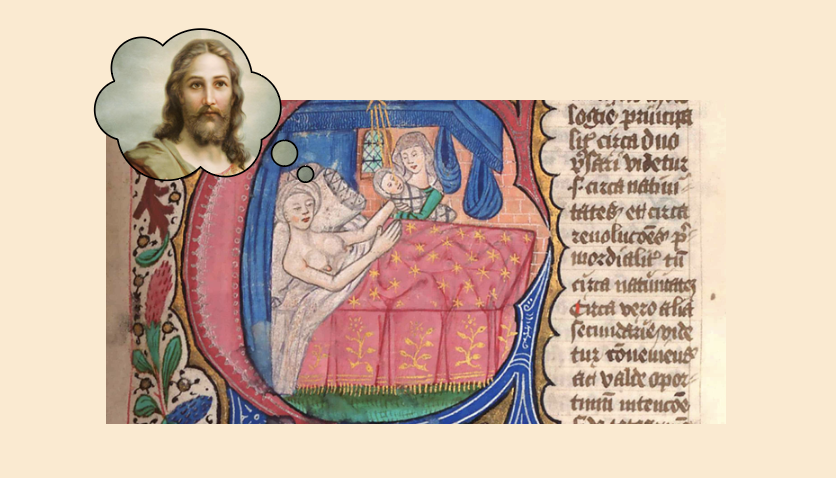 logie principa
lit̛ circa duo
v̛sari videtur
s· circa natiui
tates et circa
reuoluc̄oes p̄
mordialit̛ tn̄
circa natiuitates
Circa vero alia
secundarie vide
tur c̄oueniens
ac valde opor
tunū intenc̄oe